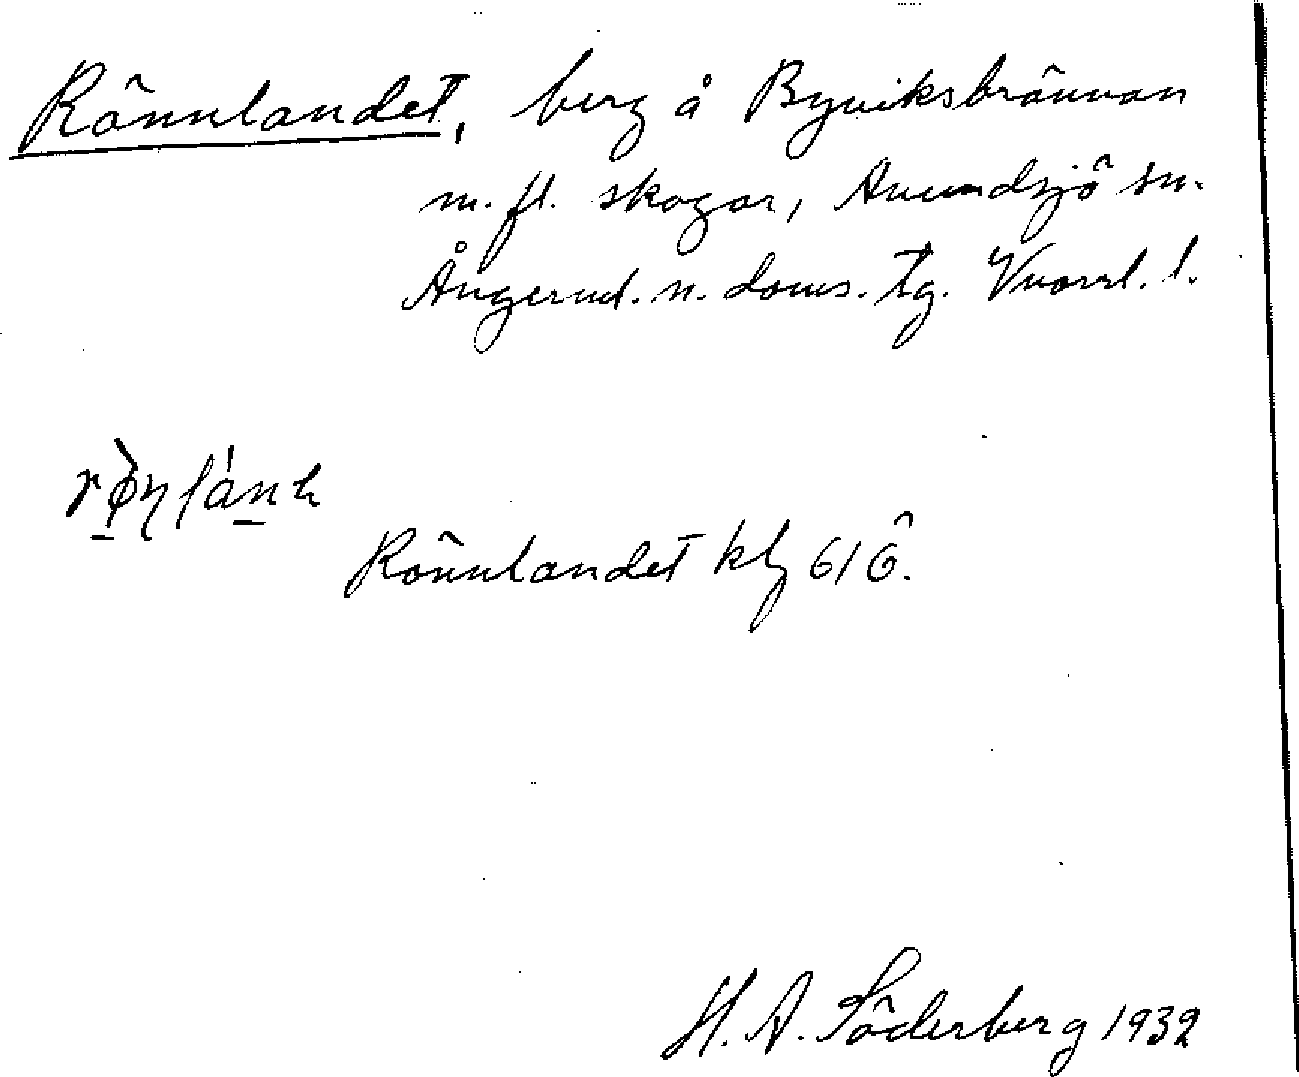 Rönnlandet, berg å Byviksbrännan
m. fl. skogar, Anundsjö sn.
Ångermd. n. doms. tg. Vnorrl. l.
Rönnlandet kb 61 Ö.
H. A. Söderberg 1932